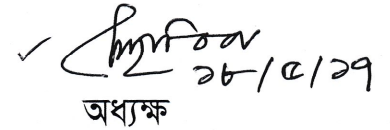 ১৮/৫/১৭
অধ্যক্ষ